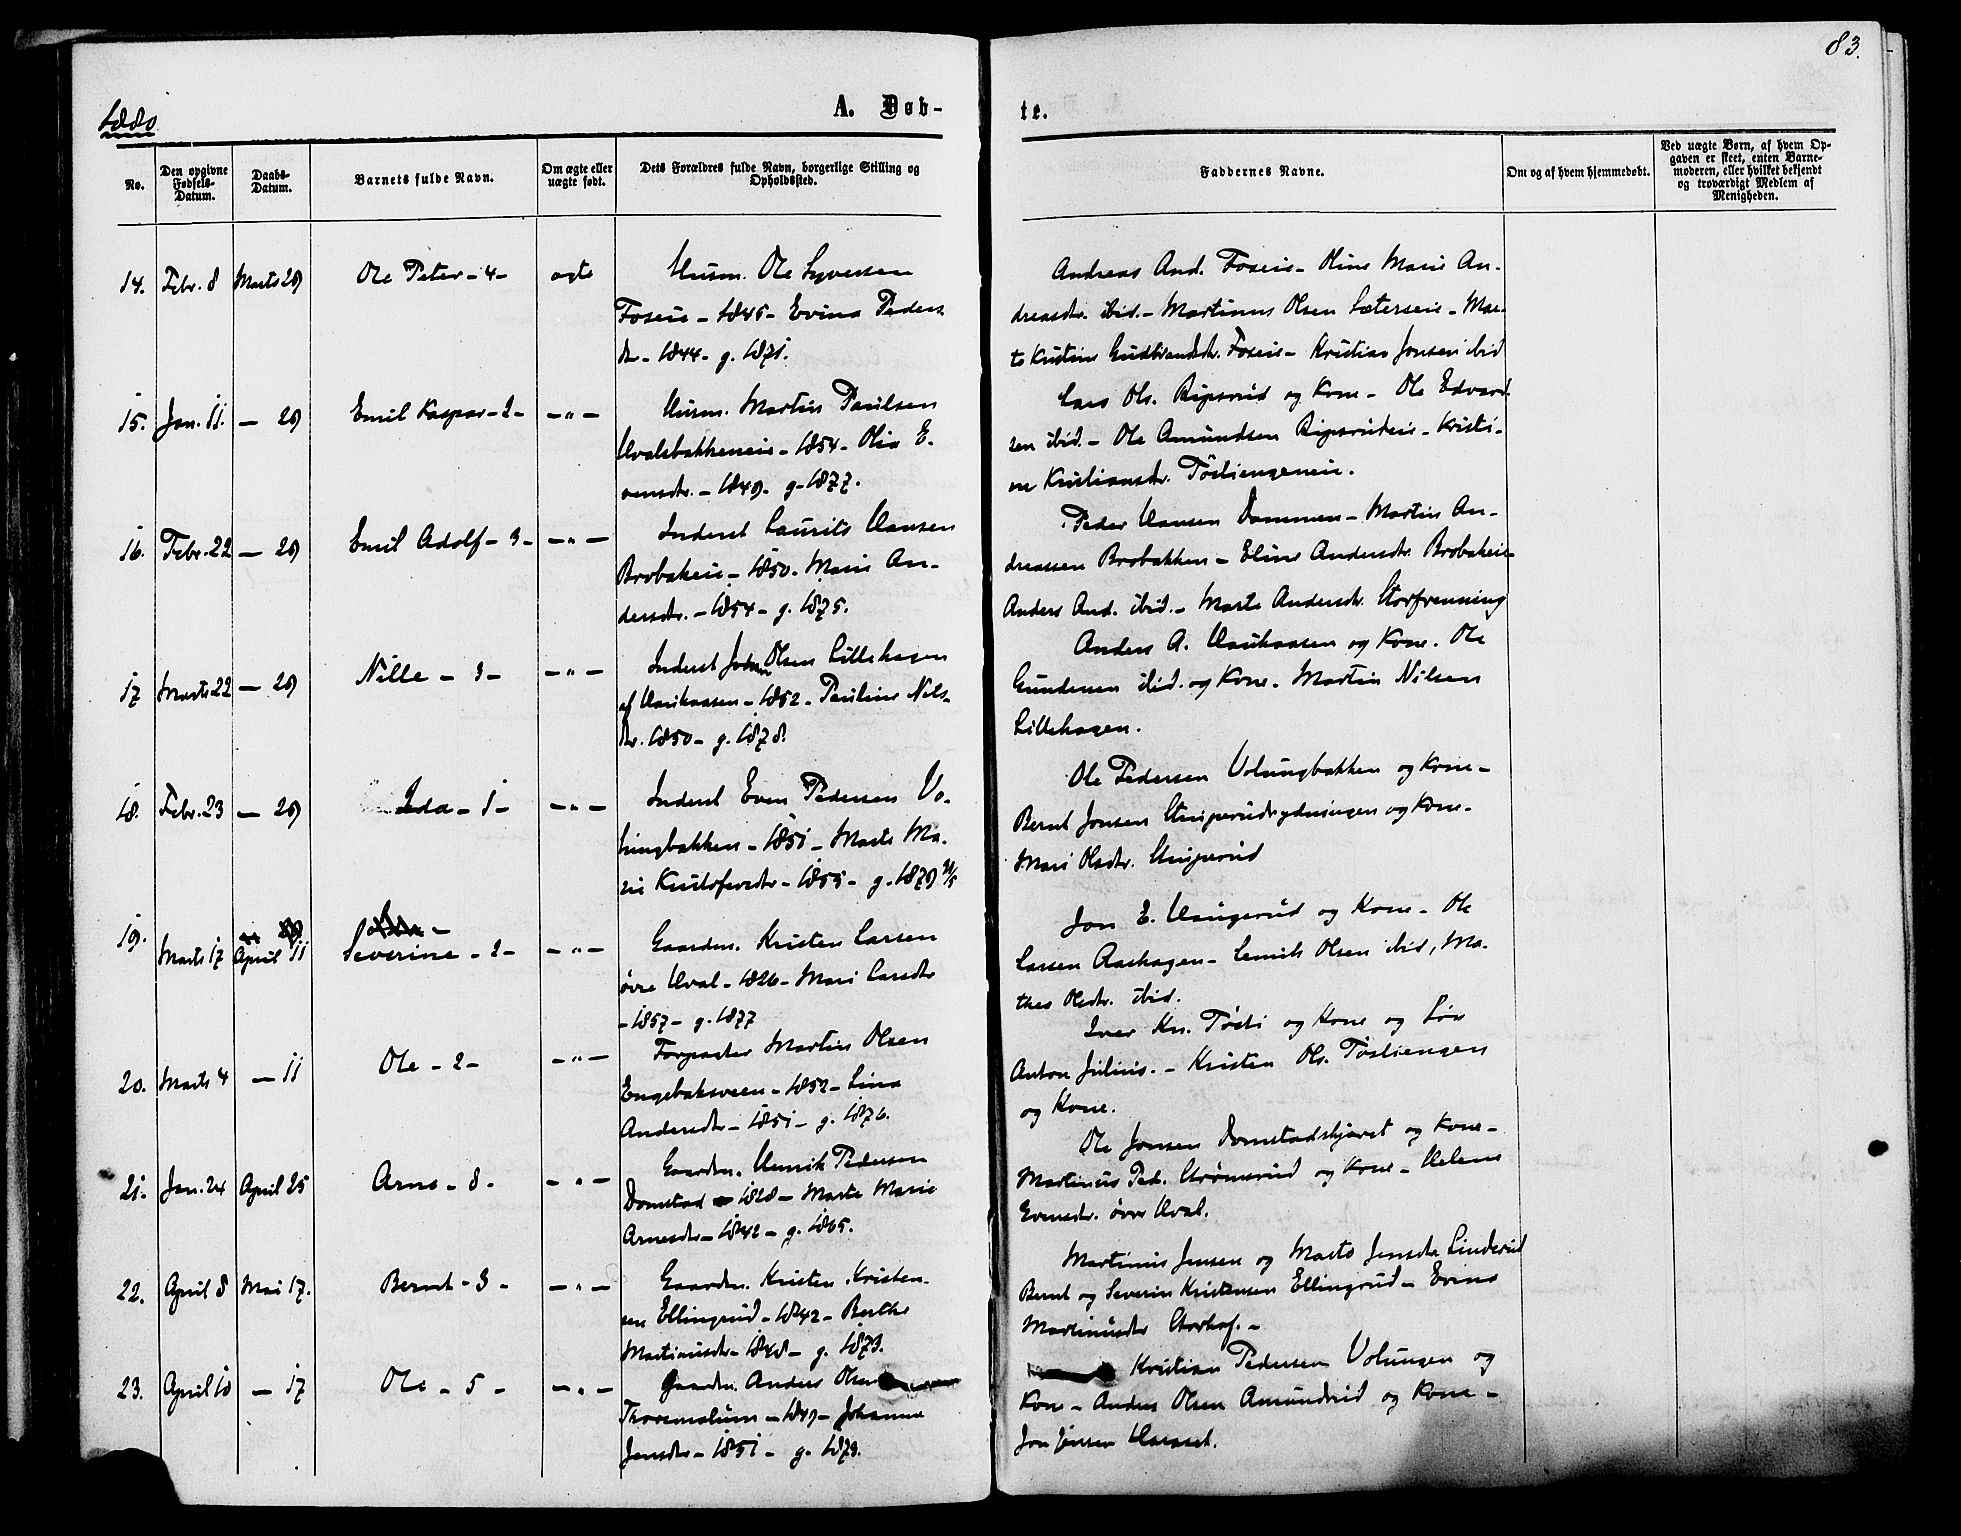 83.
1880
A. Døb-
te.
No.
Den opgivne
Fødsels-
Datum.
Daabs-
Datum.
Barnets fulde Navn.
Om ægte eller
uægte født.
Dets Forældres fulde Navn, borgerlige Stilling og
Opholdssted.
Faddernes Navne.
Om og af hvem hjemmedøbt.
Ved uægte Børn, af hvem Op-
gaven er skeet, enten Barne-
moderen, eller hvilket bekjendt
og troværdigt Medlem af
Menigheden.
14. Febr. 8 Marts 29 Ole Peter - 4 - ægte
Husm. Ole Syversen
Foseie - 1845 - Evina Peders
dr - 1844 - g. 1871.
Andreas And. Foseie - Oline Marie An-
dreasdr. ibid. - Martinus Olsen Sæterseie - Mar-
te Kristine Gudbrandsdr. Foseie - Kristian Jonsen ibid
15. Jan. 11. - 29 Emil Kaspar - 2 - - " -
Husm. Martin Paulsen
Hvalsbakkeneie - 1854 - Olia E-
vensdr. - 1849. g. 1877.
Lars Ols. Ripsrud og Kone - Ole Edvard
sen ibid. - Ole Amundsen Ripsrudeie - Kristi-
ne Kristiansdr. Tösliengeneie.
16. Febr. 22 - 29 Emil Adolf - 3 - - " -
Inderst Laurits Hansen
Brobakeie - 1850. Marie An-
dersdr. - 1854 - g. 1875.
Peder Hansen Dammen - Martin An-
dreassen Brobakken - Eline Andersdr. Brobakeie
Anders And. ibid. - Marte Andersdr. Storfrenning
17 Marts 22 - 29 Nille - 3 - - " -
Inderst Johan Olsen Lillehagen
af Haukaasen - 1852 - Pauline Nils-
dr. 1850 - g. 1878.
Anders A. Haukaasen og Kone. Ole
Gundersen ibid. og Kone. Martin Nilsen
Lillehagen.
18. Febr. 23 - 29 Ida - 1 - - " -
Inderst Even Pedersen Vo-
lungbakken - 1851 - Marte Ma-
rie Kristofersdr - 1855 - g. 1879
Ole Pedersen Volungbakken og Kone -
Bernt Jonsen Stuperudrydningen og Kone.
Mari Olsdr. Stuperud
19. Marts 17 April 11 Severine - 2 - - " -
Gaardm. Kristen Larsen
øvre Hval - 1826 - Mari Larsdr
- 1857 - g. 1877
Jon E. Haugerud og Kone - Ole
Larsen Aashagen - Lenik Olsen ibid, Ma-
thea Olsdr. ibid.
20. Marts 4 - 11 Ole - 2 - - " -
Forpagter Martin Olsen
Engebaksveen - 1852 - Lina
Andersdr - 1851 - g. 1876.
Iver Kr. Tösti og Kone og Søn
Anton Julius. - Kristen Ols. Töstiengen
og Kone.
21. Jan. 24 April 25 Arne - 8 - - " -
Gaardm. Henrik Pedersen
Domstad - 1828 - Marte Marie
Arnesdr - 1842 - g. 1865.
Ole Jonsen Domstadskjæret og Kone -
Martinus Ped. Strømsrud og Kone - Helene
Evensdr. øvre Hval.
22. April 8 Mai 17. Bernt - 3 - - " -
Gaardm. Kristen Kristen-
sen Ellingsrud - 1842 - Berthe
Martinusdr - 1848 - g. 1873.
Martinus Jensen og Marte Jensdr Linderud
Bernt og Severin Kristensen Ellingsrud - Evine
Martinusdr Storhof. -
23. April 10 - 17 Ole - 5 - - " -
Gaardm. Anders Olsen
Thorsmolum - 1849 - Johanne
Jensdr - 1851 - g. 1873.
Kristian Pedersen Volungen og
Kone - Anders Olsen Amundrud og Kone -
Jon Jensen Haraset.